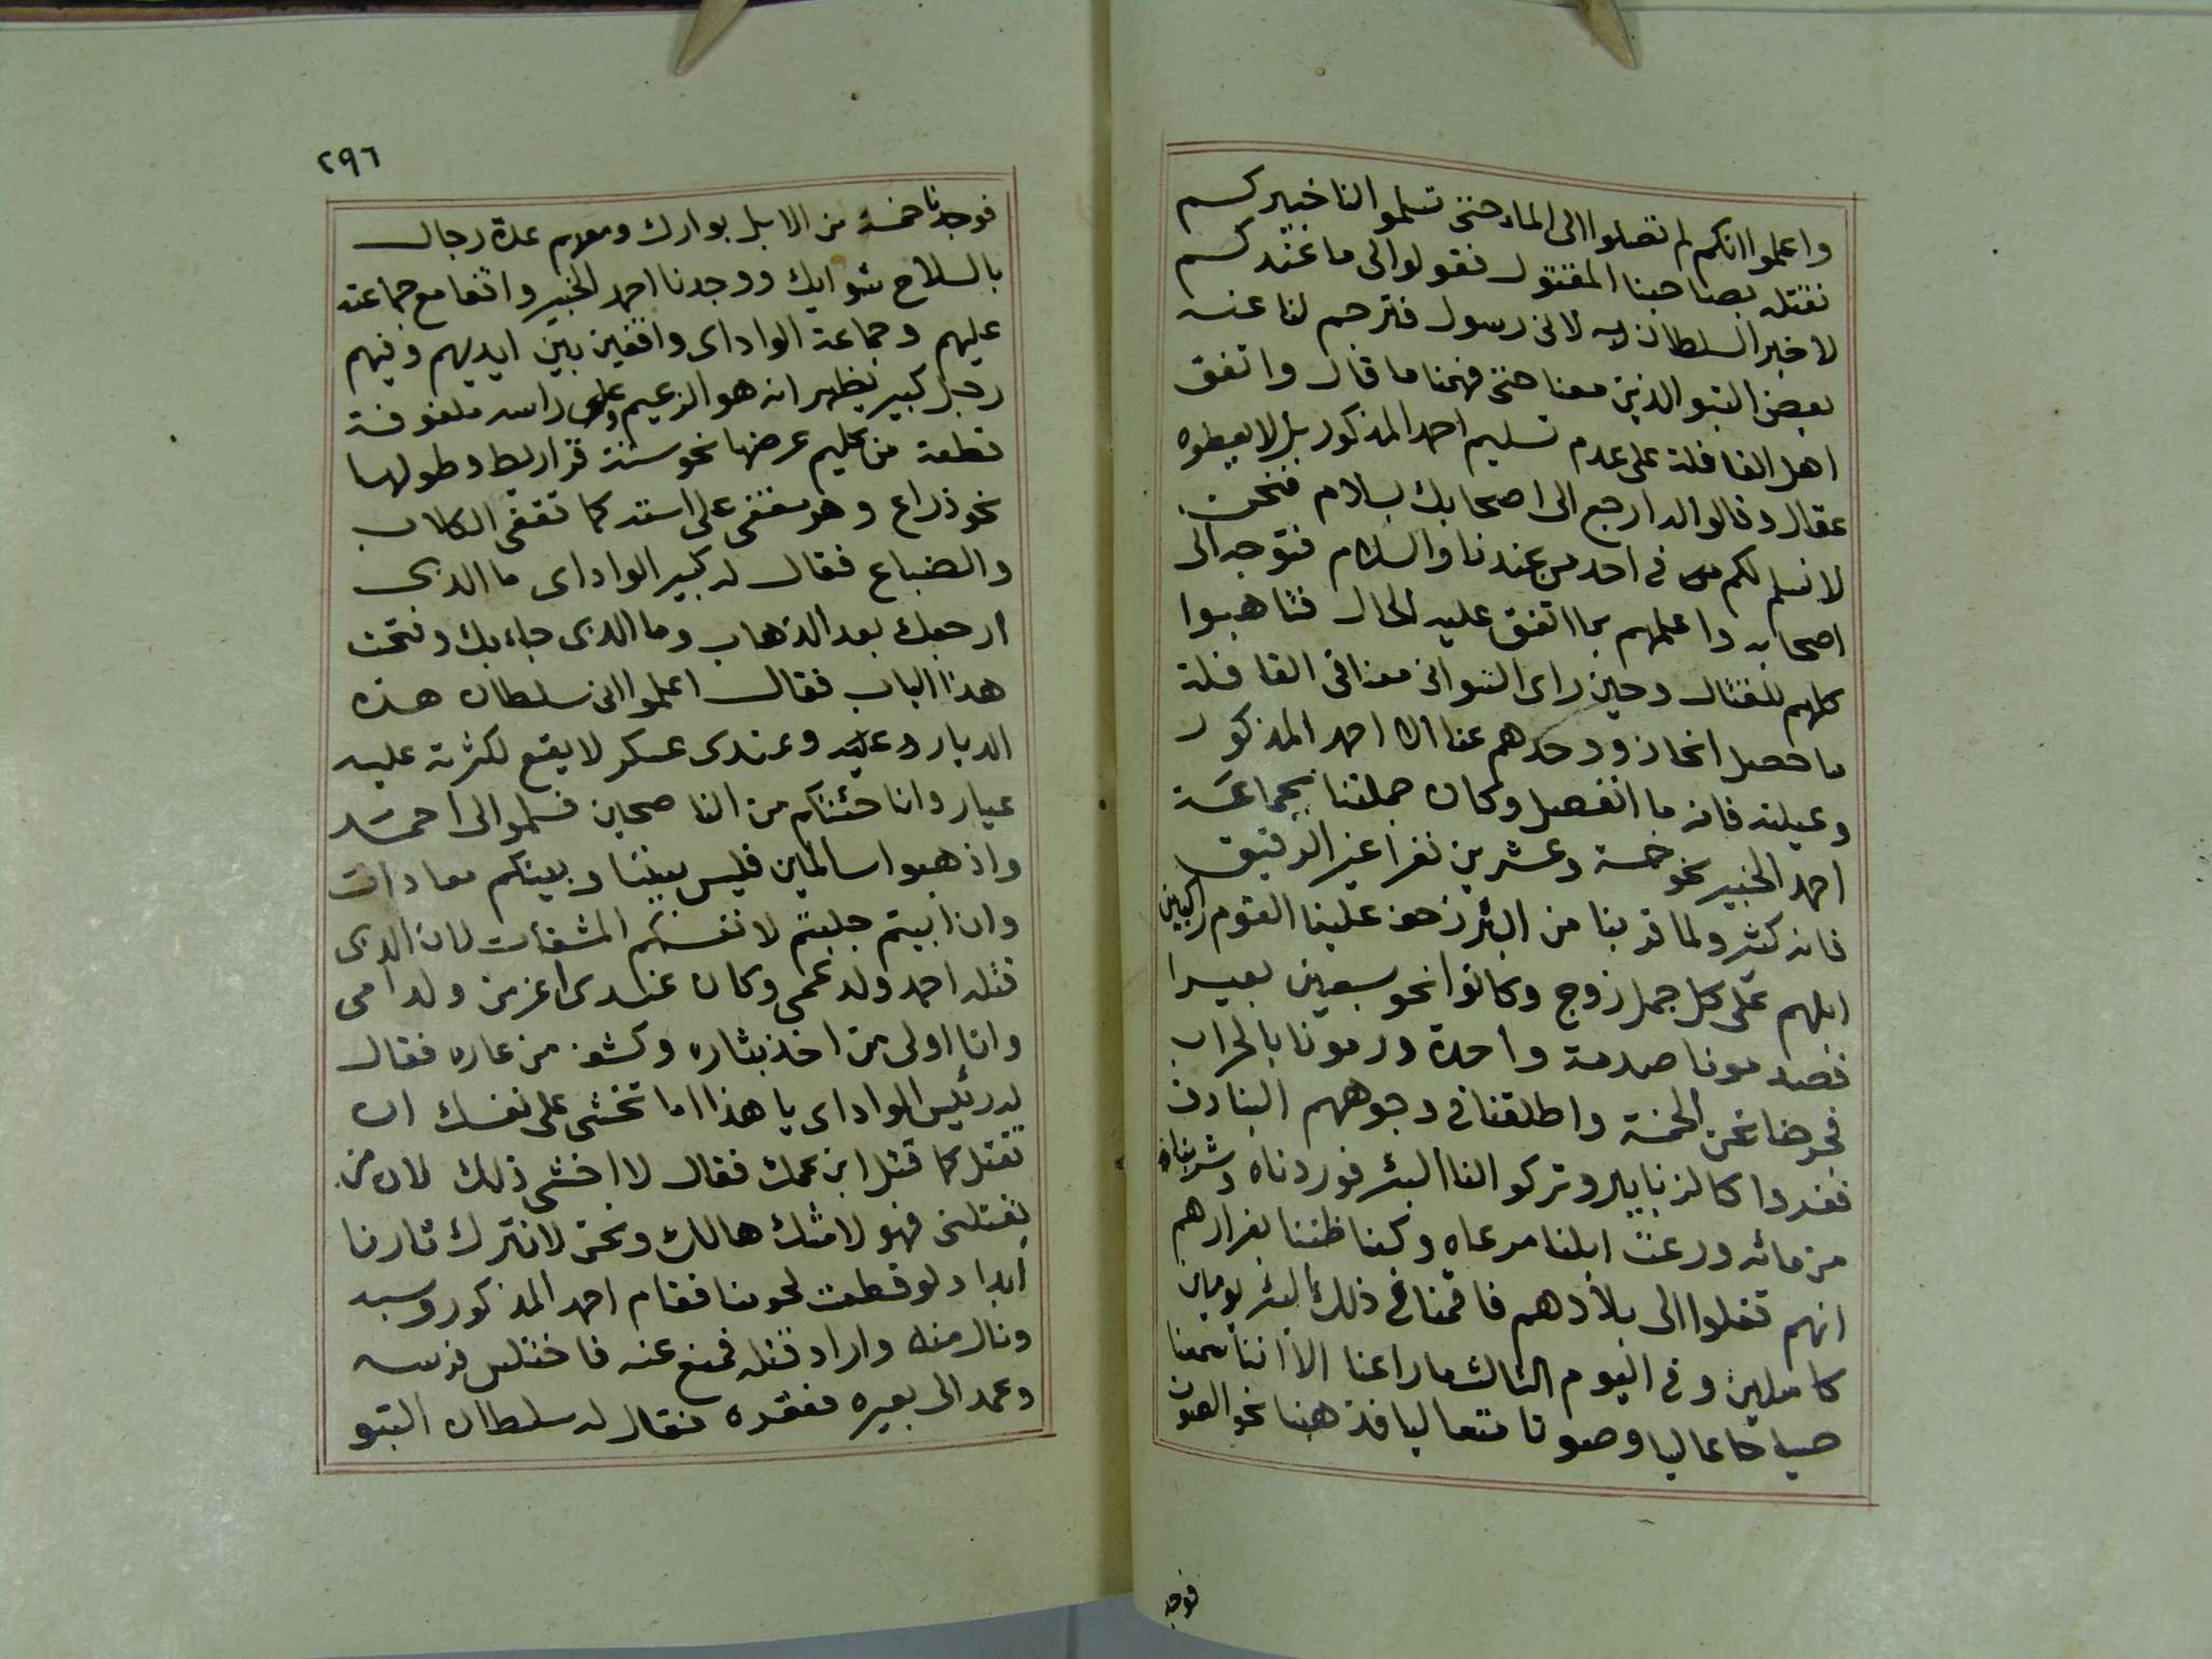 واعلموا انكم لم تصلوا الى الماء حتى تسلموا لنا خبيركم
نقتله بصاحبنا المقتول فقولوا لى ما عندكم
لاخبر السلطان به لانى رسول فترجم لنا عنه
بعض التبو الذين معنا حتى فهمنا ما قال واتفق
اهل القافلة على عدم تسليم احمد المذكور بل لا يعطوه
عقال وقالوا له ارجع الى اصحابك بسلام فنحن
لا نسلم لكم فى احد من عندنا والسلام فتوجه الى
اصحابه واعلمهم بما اتفق عليه الحال فتاهبوا
كلهم للقتال وحين راى التبو انى معنا فى القافلة
ما حصل انحازو وحدهم عنا الا احمد المذكور
وعيلته فانه ما انفصل وكان جملتنا بجماعة
احمد الخبير نحو خمسة وعشرين نفرا غير الرقيق
فانه كثير ولما قربنا من البئر زحف علينا القوم راكبين
ابلهم على كل جمل زوج وكانوا نحو سبعين بعيرا
فصدمونا صدمة واحدة ورمونا بالحراب
نحن الخمسة واطلقنا فى وجوههم البنادق
ففروا كالزنابير وتركوا لنا البئر فوردناه وشربنا
من مائه ورعت ابلنا مرعاه وكنا ظننا بفرارهم
انهم تفلوا الى بلادهم فاقمنا فى ذلك البئر يومين
كاملين وفى اليوم الثالث ما راعنا الا اننا سمعنا
صياحا عاليا وصوتا متعاليا فذهبنا نحو الصوت
فوجد
٢٩٦
فوجدنا خمسة من الابل بوارك ومعهم عدة رجال
بالسلاح شوابك ووجدنا احمد الخبير واقفا مع جماعته
عليهم وجماعة الواداى واقفين بين ايديهم وفيهم
رجل كبير يظهر انه هو الزعيم وعلى راسه ملفوفة
قطعة من كليم عرضها نحو ستة قراريط وطولها
نحو ذراع وهو مقعى على استه كما تقعى الكلاب
والضباع فقال له كبير الواداى ما الذى
ارجعك بعد الذهاب وما الذى جاء بك وفتحت
هذا الباب فقال اعلموا انى سلطان هذه
الديار وعندى عسكر لا يقع لكثرته عليه
عيار وانا جئتكم من الناصحين فسلموا الى احمد
واذهبوا سالمين فليس بيننا وبينكم معادات
وان ابيتم جلبتم لانفسكم المشقات لان الذى
قتله احمد ولد عمى وكان عندى اعز من ولد امى
وانا اولى من اخذ بثاره وكشف من عاره فقال
له رئيس الواداى يا هذا اما تخشى على نفسك ان
تقتل كما قتل ابن عمك فقال لا اخشى ذلك لان من
يقتلنى فهو لا شك هالك ونحن لا نترك ثارنا
ابدا ولو قطعت لحومنا فقام احمد المذكور وسبه
ونال منه واراد قتله فمنع عنه فاختلس فرسه
وعمد الى بعيره فعقره فقال له سلطان التبو